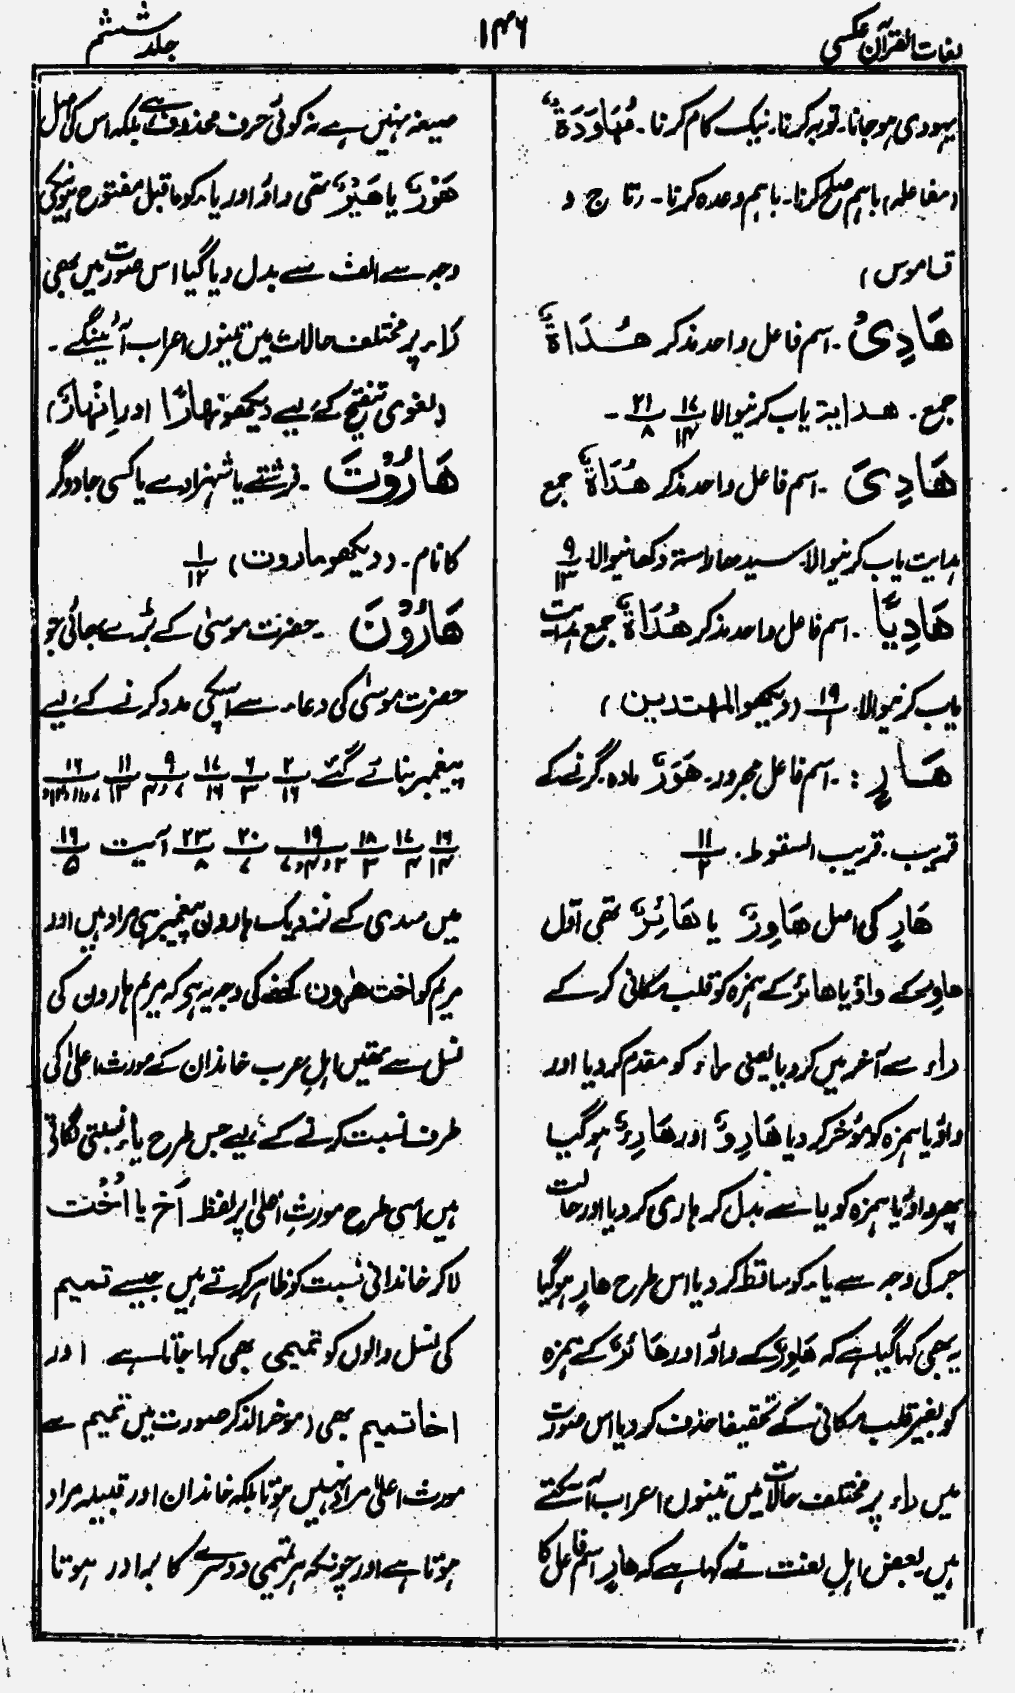 لغات القرآن عکسی
۱۴۶
جلد ششم
یہودی ہوجانا۔ توبہ کرنا۔ نیک کام کرنا۔ مُهَاوَدَةٌ
(مفاعلہ) باہم صلح کرنا۔ باہم وعدہ کرنا۔ (تاج و
قاموس)
هَادِیْ ۔ اسم فاعل واحد مذکر هُدَاةٌ
جمع ۔ هدایة یاب کرنیوالا ۱۷/۱۴ ۲۱/۸ ۔
هَادِیَ ۔ اسم فاعل واحد مذکر هُدَاةٌ جمع
ہدایت یاب کرنیوالا۔ سیدھا راستہ دکھانیوالا۔ ۹/۱۳
هَادِیًا ۔ اسم فاعل واحد مذکر هُدَاةٌ جمع ہدایت
یاب کرنیوالا۔ ۱۹/۱ (دیکھو المهتدین)
هَارٍ : ۔ اسم فاعل مجرور۔ هَوَرٌ مادہ۔ گرنے کے
قریب۔ قریب السقوط۔ ۱۱/۲
هَارٍ کی اصل هَاوِرٌ یا هَائِرٌ تھی اوّل
هاوِرٌ کے واؤ یا هائرٌ کے ہمزہ کو قلب مکانی کرکے
راء سے آخر میں کردیا یعنی راء کو مقدم کر دیا اور
واؤ یا ہمزہ کو مؤخر کر دیا هَارِوٌ اور هَارِءٌ ہوگیا
پھر واؤ یا ہمزہ کو یا سے بدل کر ہاری کر دیا اور حالت
جر کی وجہ سے یاء کو ساقط کر دیا اس طرح هارٍ ہوگیا
یہ بھی کہا گیا ہے کہ هَاوِرٌ کے واؤ اور هَائرٌ کے ہمزہ
کو بغیر قلب مکانی کے تخفیفا حذف کر دیا اس صورت
میں راء پر مختلف حالات میں تینوں اعراب آسکتے
ہیں بعض اہل لغت نے کہا ہے کہ هارٍ اسم فاعل کا
صیغہ نہیں ہے نہ کوئی حرف محذوف ہے بلکہ اس کی اصل
هَوْرٌ یا هَیْرٌ تھی واؤ اور یاء کو ماقبل مفتوح ہونیکی
وجہ سے الف سے بدل دیا گیا اس صورت میں بھی
راء پر مختلف حالات میں تینوں اعراب آئینگے ۔
(لغوی تنقیح کے لیے دیکھو نهارًا اور اِنْهارٌ)
هَارُوْتَ ۔ فرشتے یا شہزادے یا کسی جادوگر
کا نام۔ (دیکھو ماروت) ۱/۱۲
هَارُوْنَ ۔ حضرت موسیٰ کے بڑے بھائی جو
حضرت موسیٰ کی دعاء سے اسکی مدد کرنے کے لیے
پیغمبر بنائے گئے ۲/۱۶ ۶/۳ ۱۷/۱۶ ۹/۴،۷ ۱۱/۱۳ ۱۶
۱۶/۱۴ ۱۷/۴ ۱۸/۳ ۱۹/۲،۴،۷ ۲۰/۷ ۲۳/۸ آیت ۱۶/۵
میں سدی کے نزدیک ہارون پیغمبر ہی مراد ہیں اور
مریم کو اخت هٰرون کہنے کی وجہ یہ ہے کہ مریم ہارون کی
نسل سے تھیں اہلِ عرب خاندان کے مورث اعلیٰ کی
طرف نسبت کرنے کے لیے جس طرح یاءِ نسبتی لگاتے
ہیں اسی طرح مورثِ اعلیٰ پر لفظ اَخ یا اُخْت
لاکر خاندانی نسبت کو ظاہر کرتے ہیں جیسے تمیم
کی نسل والوں کو تمیمی بھی کہا جاتا ہے۔ اور
اخا تمیم بھی (موخر الذکر صورت میں تمیم سے
مورث اعلیٰ مراد نہیں ہوتا بلکہ خاندان اور قبیلہ مراد
ہوتا ہے اور چونکہ ہر تمیمی دوسرے کا برادر ہوتا